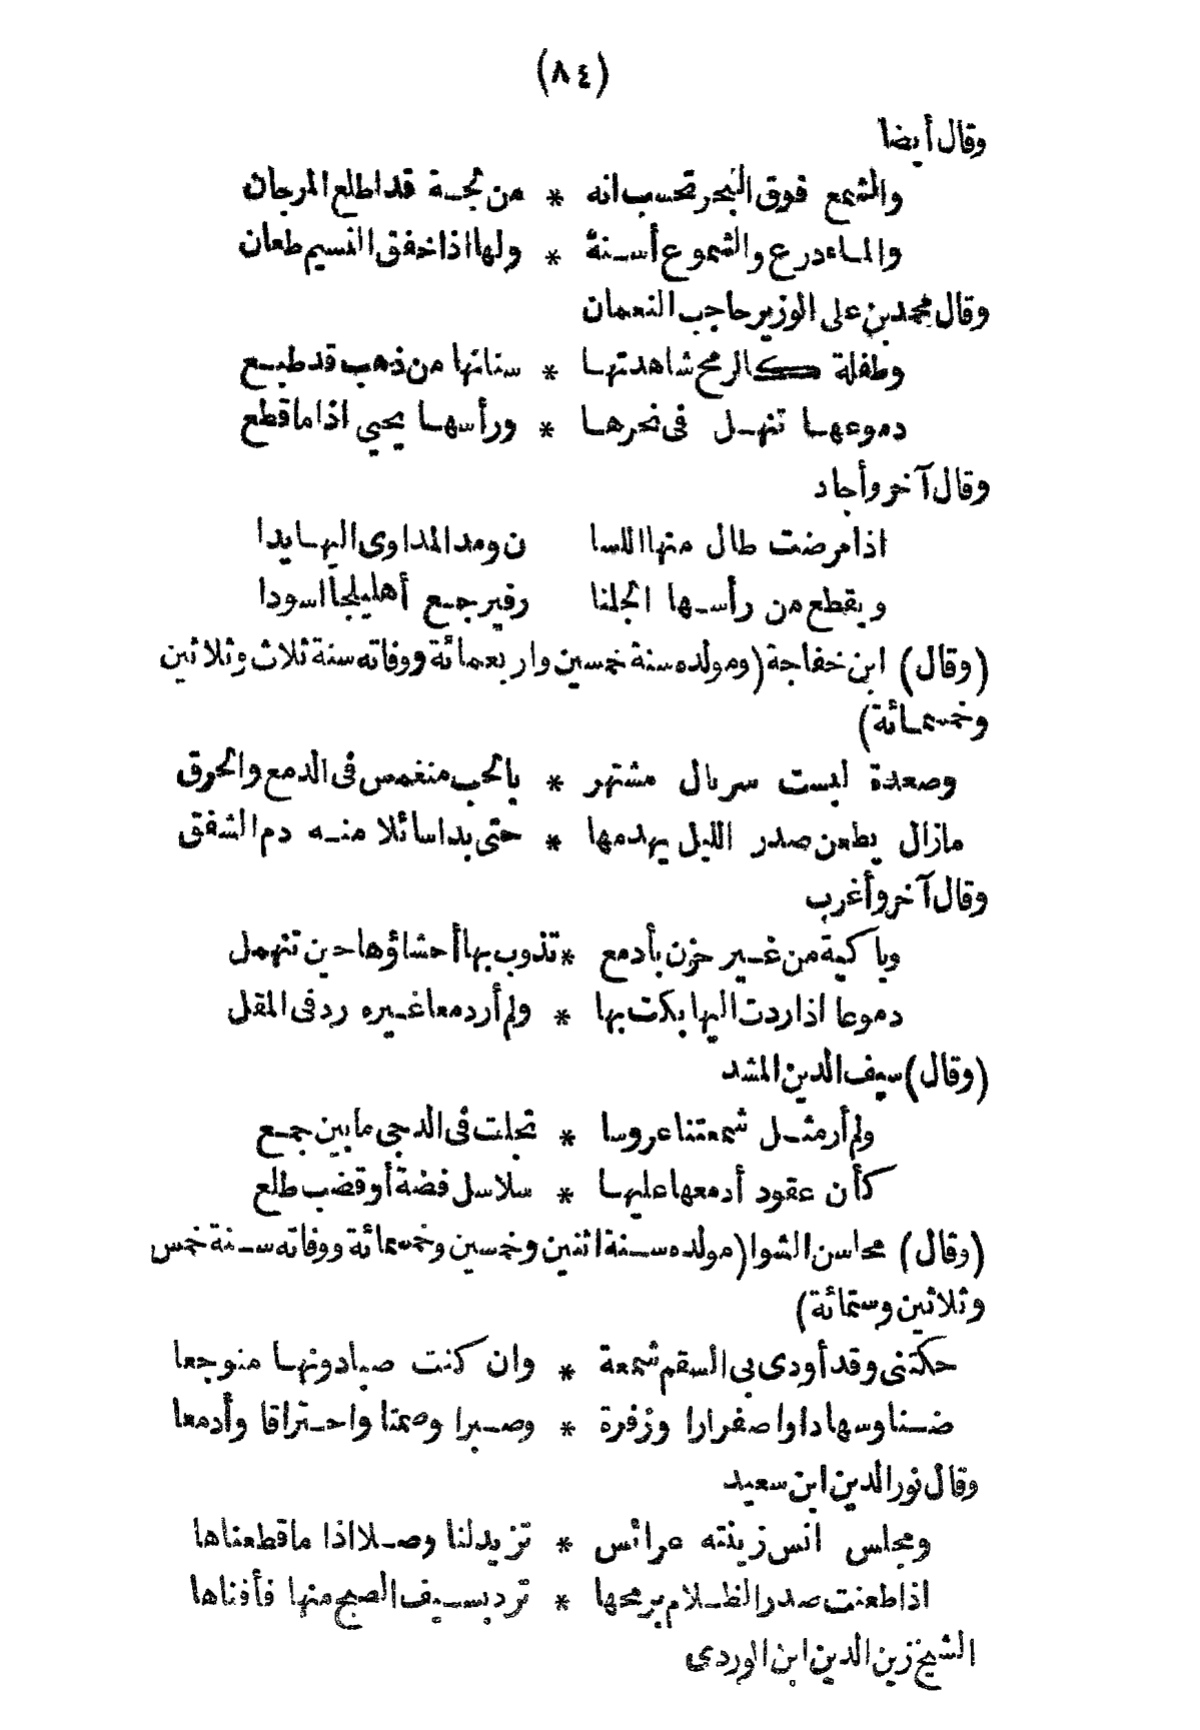 (٨٤)
وقال أيضا
والشمع فوق البحر تحسب انه * من لجة قد اطلع المرجان
والماء درع والشموع أسنة * ولها اذا خفق النسيم طعان
وقال محمد بن على الوزير حاجب النعمان
وطفلة كالرمح شاهدتها * سنانها من ذهب قد طبع
دموعها تنهل فى نحرها * ورأسها يحيي اذا ما قطع
وقال آخر وأجاد
اذا مرضت طال منها اللسا ن ومد المداوى اليها يدا
ويقطع من رأسها الجلنا رفيرجع أهليلجا اسودا
(وقال) ابن خفاجة (ومولده سنة خمسين واربعمائة ووفاته سنة ثلاث وثلاثين
وخمسمائة)
وصعدة لبست سربال مشتهر * بالحب منغمس فى الدمع والحرق
مازال يطعن صدر الليل يهدمها * حتى بدا سائلا منه دم الشفق
وقال آخر وأغرب
وباكية من غير حزن بأدمع * تذوب بها أحشاؤها حين تنهمل
دموعا اذا ردت اليها بكت بها * ولم أر دمعا غيره رد فى المقل
(وقال) سيف الدين المشد
ولم أر مثل شمعتنا عروسا * تجلت فى الدجى مابين جمع
كأن عقود أدمعها عليها * سلاسل فضة أو قضب طلع
(وقال) محاسن الشوا (مولده سنة اثنين وخمسين وخمسمائة ووفاته سنة خمس
وثلاثين وستمائة)
حكتنى وقد أودى بى السقم شمعة * وان كنت صبا دونها متوجعا
ضنا وسهادا واصفرارا وزفرة * وصبرا وصمتا واحتراقا وأدمعا
وقال نور الدين ابن سعيد
ومجلس انس زينته عرائس * تزيد لنا وصلا اذا ما قطعناها
اذا طعنت صدر الظلام برمحها * ترد بسيف الصبح منها فأفناها
الشيخ زين الدين ابن الوردى